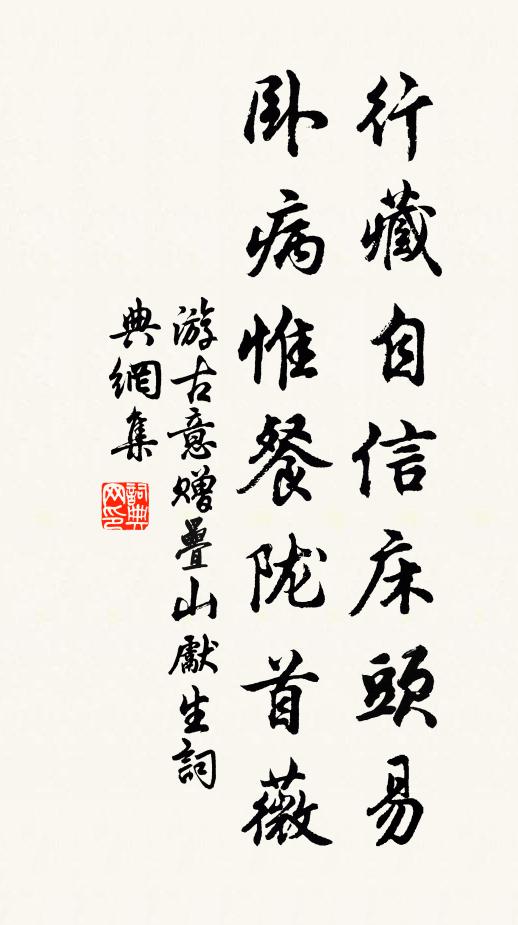 行藏自信床頭易
卧病惟餐陇首薇
游古意赠疊山獻生詞
典網集
詞典
网印